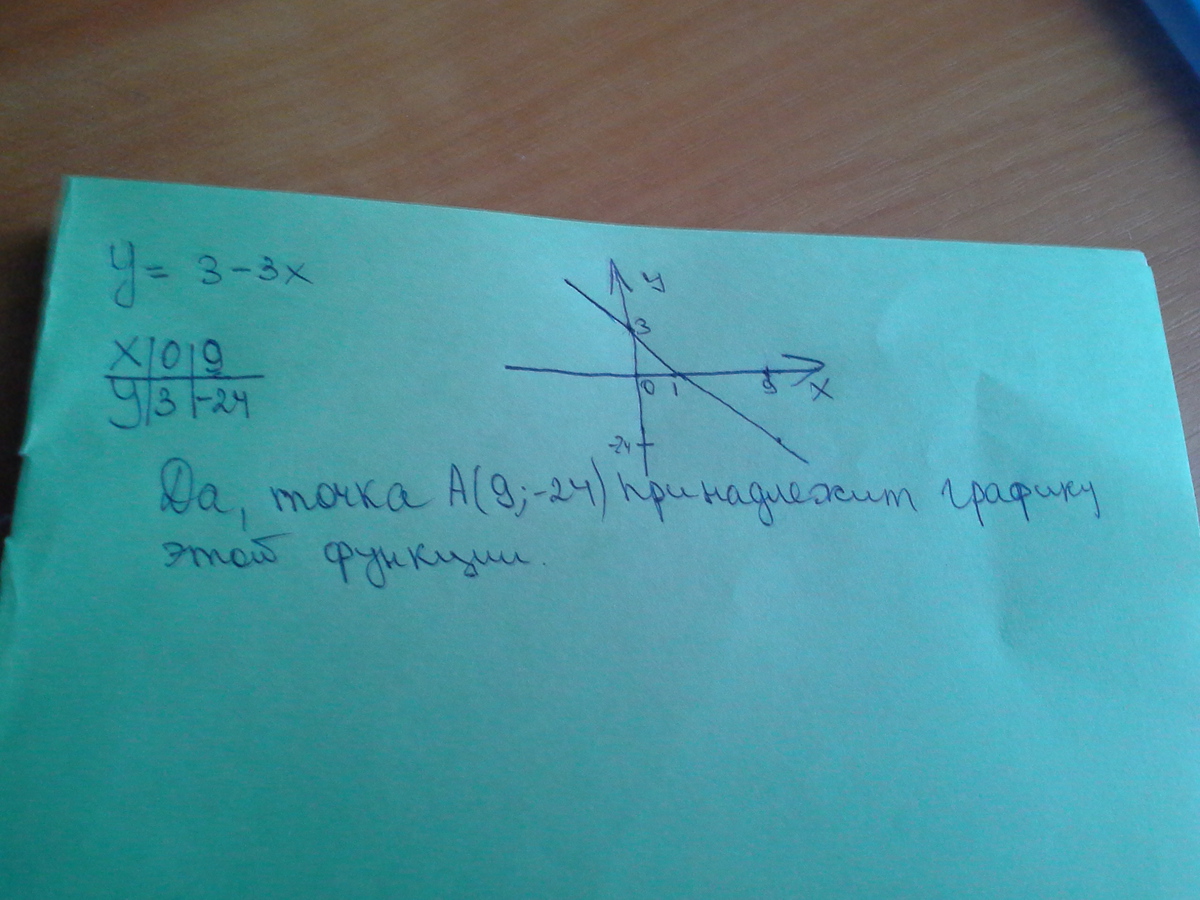 y = 3 - 3x
y
3
x | 0 | 9
y | 3 | -24
0 1 9 x
-24
Да, точка A(9; -24) принадлежит графику
этой функции.